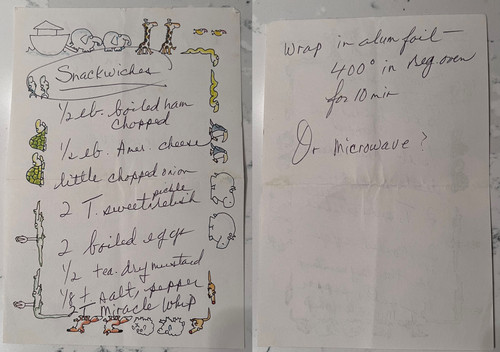 Snackwiches
1/2 lb. boiled ham
chopped
1/2 lb. Amer. cheese
little chopped onion
pickle
2 T. sweet relish
2 boiled eggs
1/2 tea. dry mustard
1/8 t salt, pepper
2 T Miracle Whip
Wrap in alum foil —
400° in reg. oven
for 10 min
Or microwave?